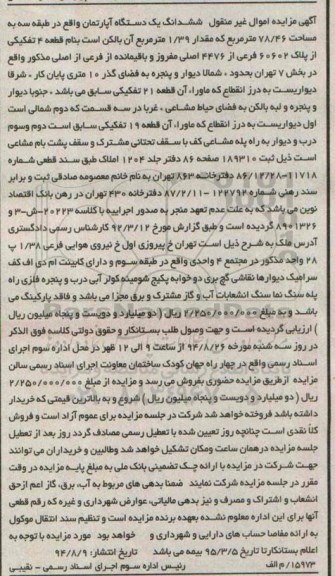 آگهی مزایده اموال غیر منقول ششدانگ یک دستگاه آپارتمان واقع در طبقه سه به
مساحت ۷۸/۴۶ مترمربع که مقدار ۱/۳۹ مترمربع آن بالکن است بنام قطعه ۴ تفکیکی
از پلاک ۶۰۶۰۲ فرعی از ۴۴۷۶ اصلی مفروز و باقیمانده از فرعی از اصلی مذکور واقع
در بخش ۷ تهران بحدود ، شمالا دیوار و پنجره به فضای گذر ۱۰ متری پایان کار ، شرقا
دیواریست به درز انقطاع که ماوراء آن قطعه ۲۱ تفکیکی سابق می باشد ، جنوبا دیوار
و پنجره و لبه بالکن به فضای حیاط مشاعی ، غربا در سه قسمت که دوم شمالی است
اول دیواریست به درز انقطاع که ماوراء آن قطعه ۱۹ تفکیکی سابق است دوم وسوم
درب و دیوار به راه پله مشاعی کف با سقف تحتانی مشترک و سقف پشت بام مشاعی
است ذیل ثبت ۱۸۹۳۱۰ صفحه ۸۶ دفتر جلد ۱۲۰۴ املاک طبق سند قطعی شماره
۱۱۷۱۸-۸۶/۱۲/۲۸ دفترخانه ۸۶۳ تهران به نام خانم معصومه صادقی ثبت و برابر
سند رهنی شماره ۱۲۲۷۹۴ - ۸۷/۲/۱۱ دفترخانه ۴۳۰ تهران در رهن بانک اقتصاد
نوین می باشد که به علت عدم تعهد منجر به صدور اجراییه با کلاسه ۲۰۲۲۳-ش-۳ و
۸۹۰۱۳۲۶ گردیده است و طبق گزارش مورخ ۹۲/۳/۱۲ کارشناس رسمی دادگستری
آدرس ملک به شرح ذیل است تهران خ پیروزی اول خ نیروی هوایی فرعی ۱/۳۸ پ
۲۸ واحد مذکور در مجتمع ۴ واحدی واقع در طبقه سوم و دارای کابینت ام دی اف کف
سرامیک دیوارها نقاشی گچ بری دو خوابه پکیج شومینه کولر آبی درب و پنجره فلزی راه
پله سنگ نما سنگ انشعابات آب و گاز مشترک و برق مجزا می باشد و فاقد پارکینگ می
باشد و به مبلغ ۲/۲۵۰/۰۰۰/۰۰۰ ریال ( دو میلیارد و دویست و پنجاه میلیون ریال
) ارزیابی گردیده است و جهت وصول طلب بستانکار و حقوق دولتی کلاسه فوق الذکر
در روز سه شنبه مورخه ۹۴/۸/۲۶ از ساعت ۹ الی ۱۲ ظهر در محل اداره سوم اجرای
اسناد رسمی واقع در چهار راه جهان کودک ساختمان معاونت اجرای اسناد رسمی سالن
مزایده از طریق مزایده حضوری بفروش می رسد و مزایده از مبلغ ۲/۲۵۰/۰۰۰/۰۰۰
ریال ( دو میلیارد و دویست و پنجاه میلیون ریال ) شروع و به بالاترین قیمتی که خریدار
داشته باشد فروخته خواهد شد شرکت در جلسه مزایده برای عموم آزاد است و فروش
کلا نقدی است چنانچه روز تعیین شده با تعطیل رسمی مصادف گردد روز بعد از تعطیل
جلسه مزایده درهمان ساعت ومکان تشکیل خواهد شد وطالبین و خریداران می توانند
جهت شرکت در مزایده با ارائه چک تضمینی بانک ملی به مبلغ پایه مزایده در وقت
مقرر در جلسه مزایده شرکت نمایند ضمنا بدهی های مربوط به آب، برق، گاز اعم ازحق
انشعاب و اشتراک و مصرف و نیز بدهی مالیاتی، عوارض شهرداری و غیره که رقم قطعی
آنها برای این اداره معلوم نشده بعهده برنده مزایده است و تنظیم سند انتقال موکول
به ارائه مفاصا حساب های دارایی و شهرداری و خواهد بود مورد مزایده با توجه به
اعلام بستانکار تا تاریخ ۹۵/۳/۵ بیمه می باشد تاریخ انتشار: ۹۴/۸/۹
۱۵۹۷۳/م الف رئیس اداره سوم اجرای اسناد رسمی - نقیبی